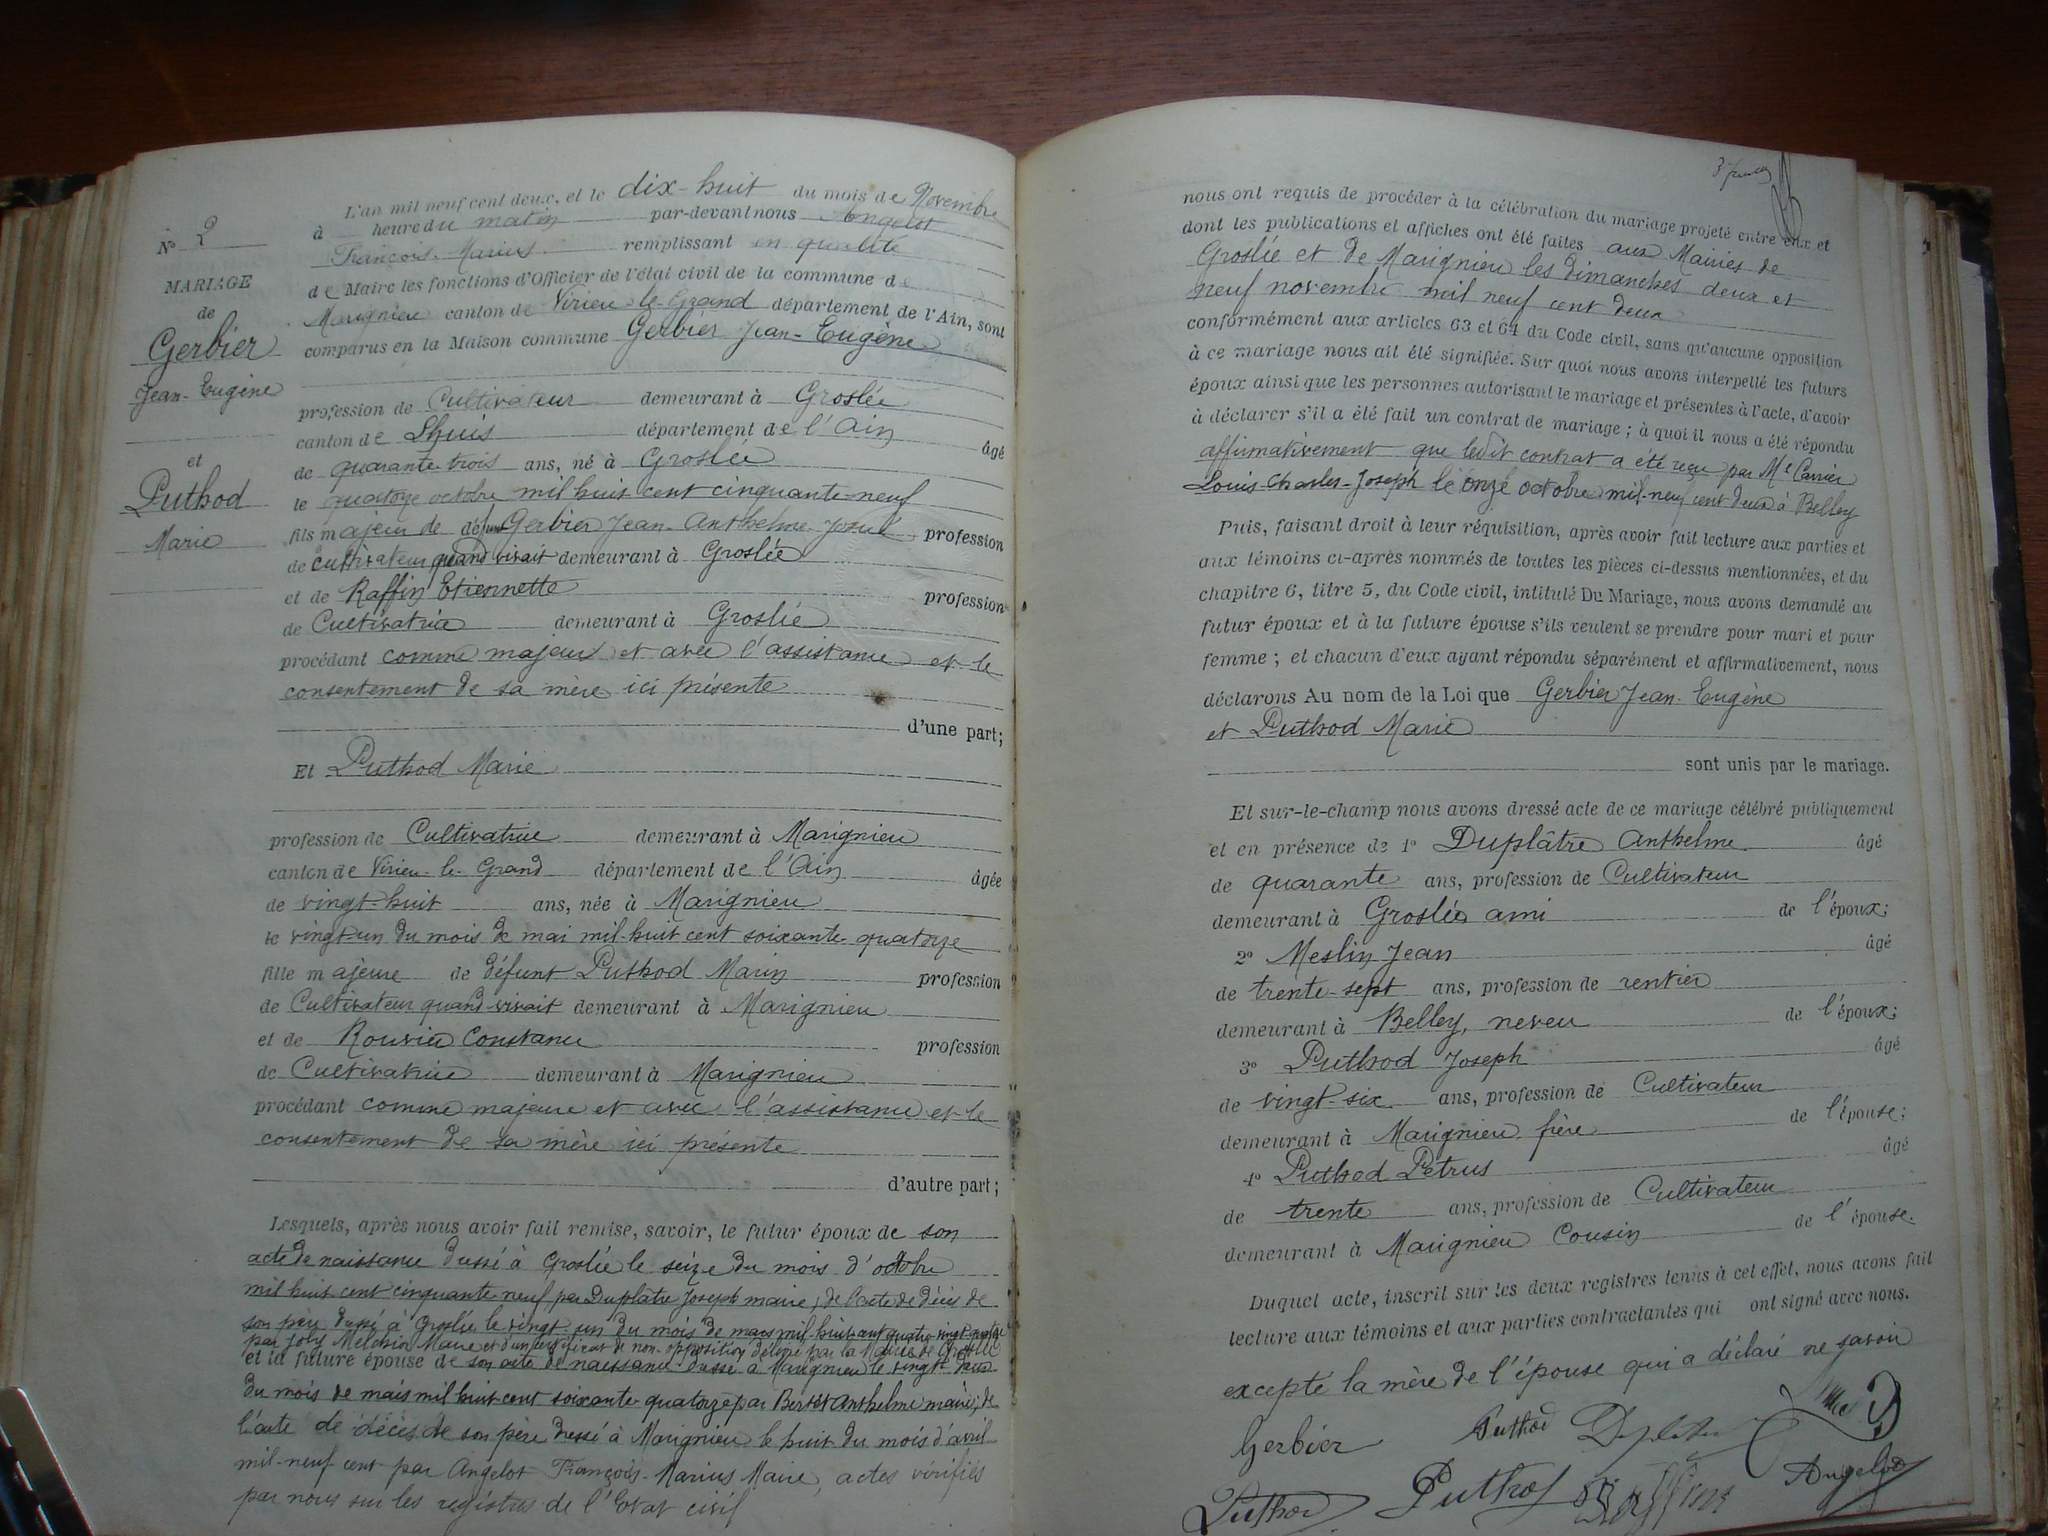 N° 2
MARIAGE
de
Gerbier
Jean-Eugène
et
Puthod
Marie
L'an mil neuf cent deux, et le dix-huit du mois de Novembre
à heure du matin par-devant nous Angelot
François-Marius remplissant en qualité
de Maire les fonctions d'Officier de l'état civil de la commune de
Marignieu canton de Virieu-le-Grand département de l'Ain, sont
comparus en la Maison commune Gerbier Jean-Eugène
profession de Cultivateur demeurant à Groslée
canton de Lhuis département de l'Ain âgé
de quarante-trois ans, né à Groslée
le quatorze octobre mil huit cent cinquante-neuf
fils majeur de défunt Gerbier Jean-Anthelme profession
de cultivateur quand vivait demeurant à Groslée
et de Raffin Etiennette profession
de Cultivatrice demeurant à Groslée
procédant comme majeur et avec l'assistance et le
consentement de sa mère ici présente
d'une part;
Et Puthod Marie
profession de Cultivatrice demeurant à Marignieu
canton de Virieu-le-Grand département de l'Ain âgée
de vingt-huit ans, née à Marignieu
le vingt-un du mois de mai mil-huit cent soixante-quatorze
fille majeure de défunt Puthod Marin profession
de Cultivateur quand vivait demeurant à Marignieu
et de Rouvier Constance profession
de Cultivatrice demeurant à Marignieu
procédant comme majeure et avec l'assistance et le
consentement de sa mère ici présente
d'autre part;
Lesquels, après nous avoir fait remise, savoir, le futur époux de son
acte de naissance dressé à Groslée le seize du mois d'octobre
mil huit cent cinquante-neuf par Duplatre Joseph maire; de l'acte de décès de
son père dressé à Groslée le vingt-un du mois de mars mil-huit-cent quatre-vingt-
par Joly Melchior Maire et d'un certificat de non-opposition délivré par la Mairie de Groslée
et la future épouse de son acte de naissance dressé à Marignieu le vingt-deux
du mois de mais mil huit cent soixante-quatorze par Berset Anthelme maire; de
l'acte de décès de son père dressé à Marignieu le huit du mois d'avril
mil-neuf cent par Angelot François-Marius Maire, actes vérifiés
par nous sur les registres de l'Etat civil
nous ont requis de procéder à la célébration du mariage projeté entre eux et
dont les publications et affiches ont été faites aux Mairies de
Groslée et de Marignieu les dimanches deux et
neuf novembre mil neuf cent deux
conformément aux articles 63 et 64 du Code civil, sans qu'aucune opposition
à ce mariage nous ait été signifiée. Sur quoi nous avons interpellé les futurs
époux ainsi que les personnes autorisant le mariage et présentes à l'acte, d'avoir
à déclarer s'il a été fait un contrat de mariage; à quoi il nous a été répondu
affirmativement que ledit contrat a été reçu par Me Carrier
Louis-Charles-Joseph le onze octobre mil-neuf cent deux à Belley
Puis, faisant droit à leur réquisition, après avoir fait lecture aux parties et
aux témoins ci-après nommés de toutes les pièces ci-dessus mentionnées, et du
chapitre 6, titre 5, du Code civil, intitulé Du Mariage, nous avons demandé au
futur époux et à la future épouse s'ils veulent se prendre pour mari et pour
femme; et chacun d'eux ayant répondu séparément et affirmativement, nous
déclarons Au nom de la Loi que Gerbier Jean-Eugène
et Puthod Marie
sont unis par le mariage.
Et sur-le-champ nous avons dressé acte de ce mariage célébré publiquement
et en présence de 1° Duplâtre Anthelme âgé
de quarante ans, profession de Cultivateur
demeurant à Groslée ami de l'époux;
2° Meslin Jean âgé
de trente-sept ans, profession de rentier
demeurant à Belley, neveu de l'époux;
3° Puthod Joseph âgé
de vingt-six ans, profession de Cultivateur
demeurant à Marignieu frère de l'épouse;
4° Puthod Petrus âgé
de trente ans, profession de Cultivateur
demeurant à Marignieu Cousin de l'épouse.
Duquel acte, inscrit sur les deux registres tenus à cet effet, nous avons fait
lecture aux témoins et aux parties contractantes qui ont signé avec nous.
excepté la mère de l'épouse qui a déclaré ne savoir
Gerbier Puthod Duplatre
Puthod Puthod Raffin Angelot